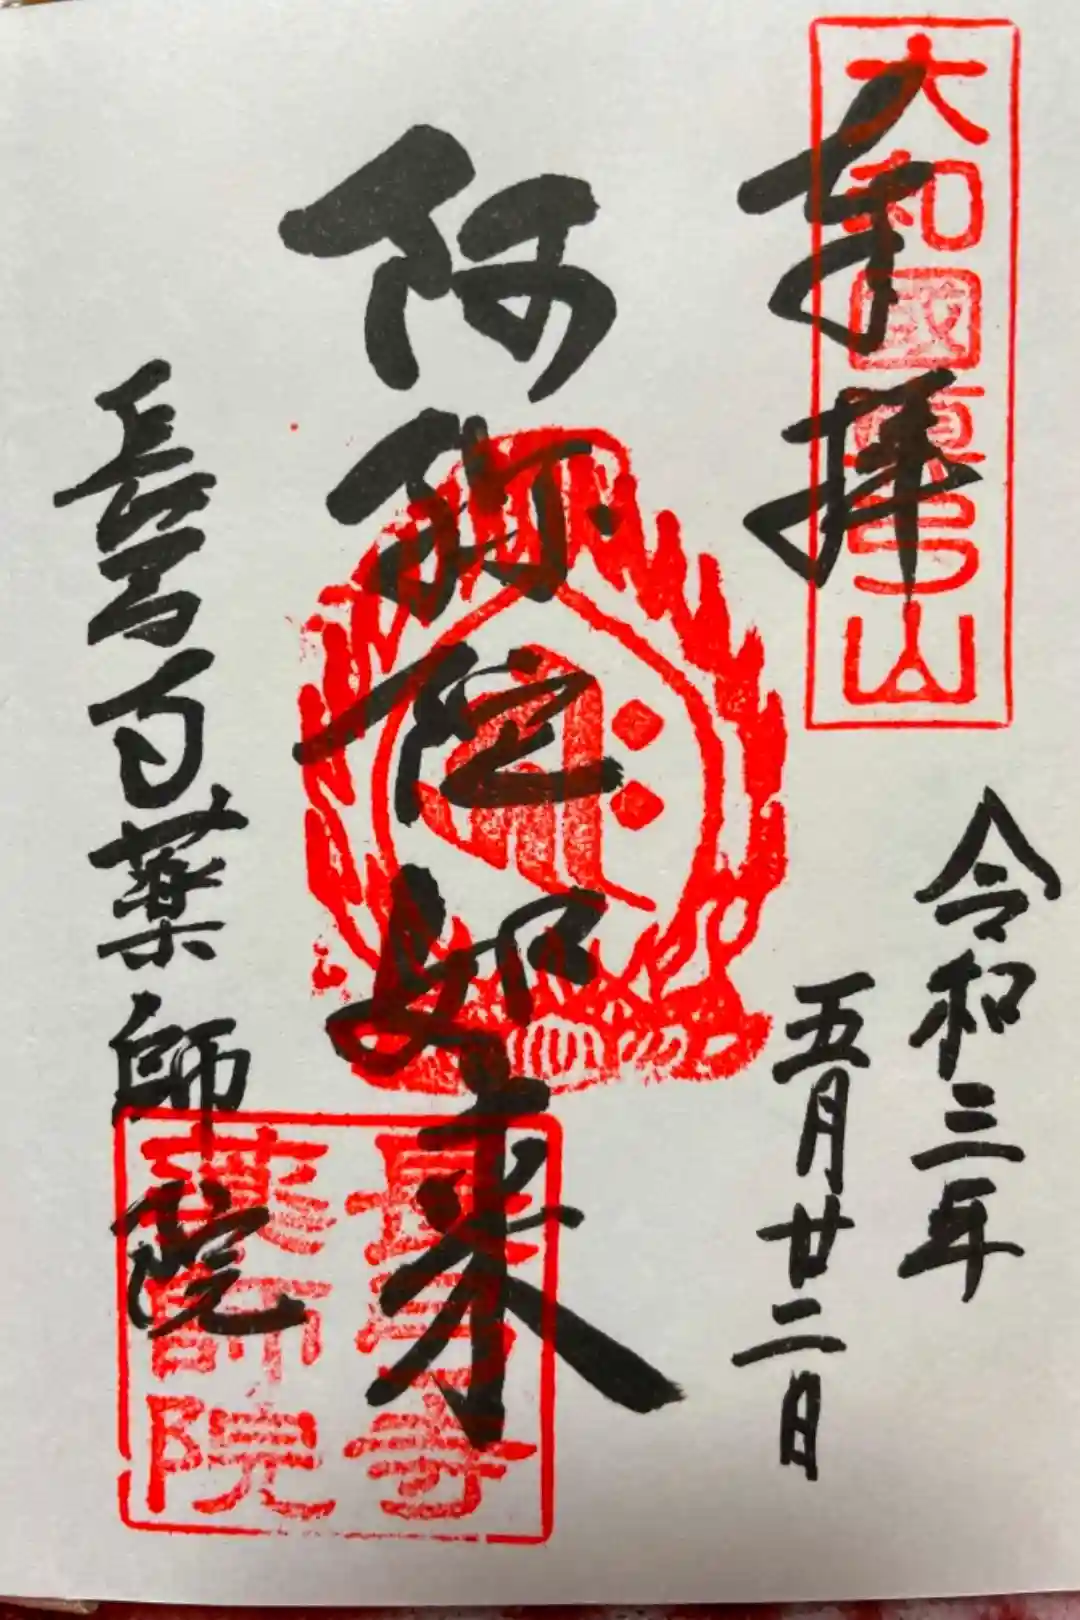 大和國真弓山
奉拝
令和三年
五月廿二日
阿弥陀如来
長弓寺薬師院
長弓寺
薬師院